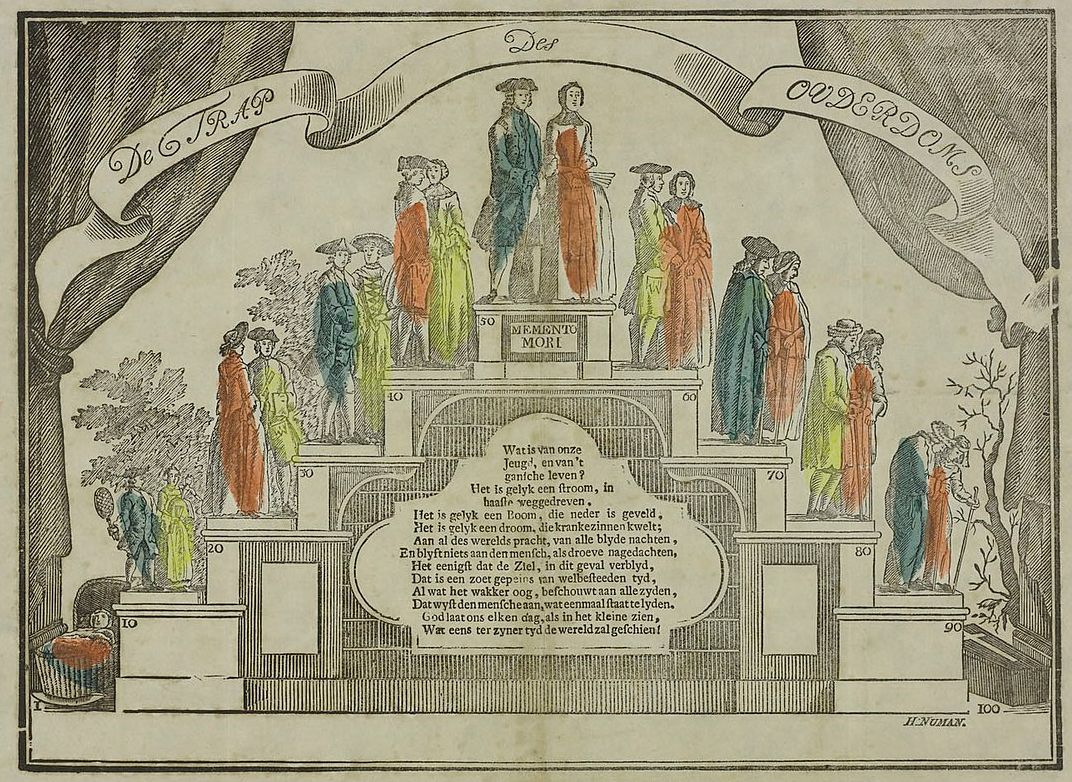 De TRAP
Des
OUDERDOMS
50
MEMENTO
MORI
40
60
30
70
20
80
10
90
1
100
Wat is van onze
Jeugd, en van't
gansche leven?
Het is gelyk een stroom, in
haaste weggedreven,
Het is gelyk een Boom, die neder is geveld,
Het is gelyk een droom, die kranke zinnen kwelt;
Aan al des werelds pracht, van alle blyde nachten,
En blyft niets aan den mensch, als droeve nagedachten,
Het eenigst dat de Ziel, in dit geval verblyd,
Dat is een zoet gepeins van welbesteeden tyd,
Al wat het wakker oog, beschouwt aan alle zyden,
Dat wyst den mensche aan, wat eenmaal staat te lyden.
God laat ons elken dag, als in het kleine zien,
Wat eens ter zyner tyd de wereld zal geschien!
H. NUMAN.